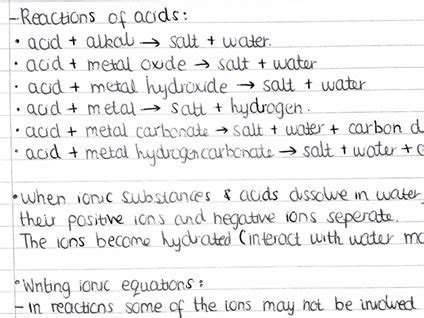 -Reactions of acids:
• acid + alkali → salt + water.
• acid + metal oxide → salt + water
• acid + metal hydroxide → salt + water
• acid + metal → salt + hydrogen.
• acid + metal carbonate → salt + water + carbon d
• acid + metal hydrogencarbonate → salt + water + c
• When ionic substances & acids dissolve in water,
their positive ions and negative ions seperate.
The ions become hydrated (interact with water mo
• Writing ionic equations:
- In reactions some of the ions may not be involved